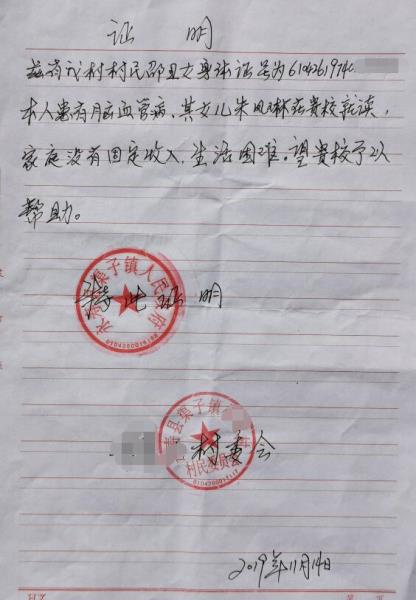 证 明
兹有我村村民邵卫女身体证号为61042619740
本人患有脑血管病、其女儿朱凤琳在贵校就读,
家庭没有固定收入、生活困难。望贵校予以
帮助。
永寿县渠子镇人民政府
特此证明
县渠子镇
村委会
村民委员会
2019年11月14日